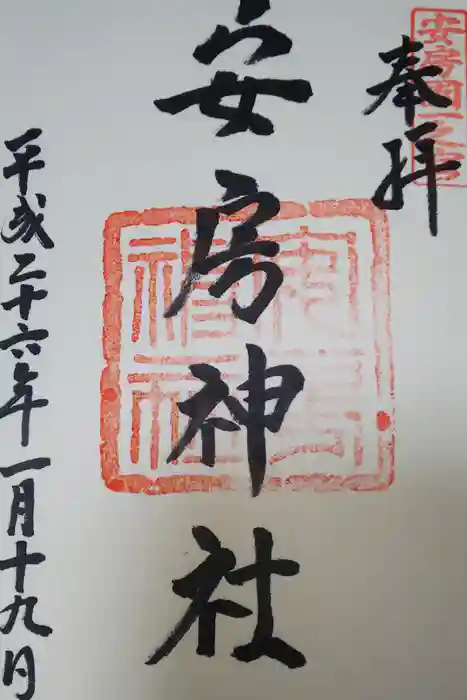 安房国一之宮
奉拝
安房神社
安房神社
平成二十六年一月十九日